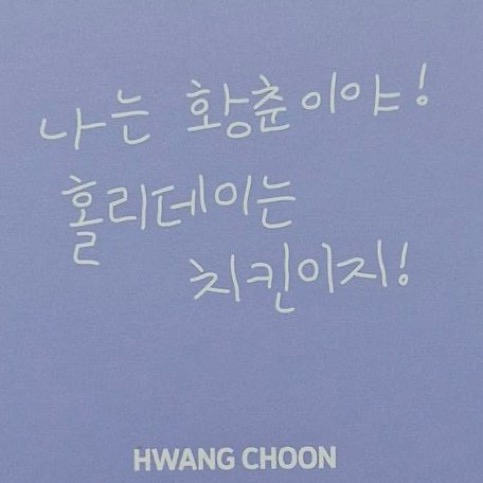 나는 황춘이야!
홀리데이는
치킨이지!
HWANG CHOON